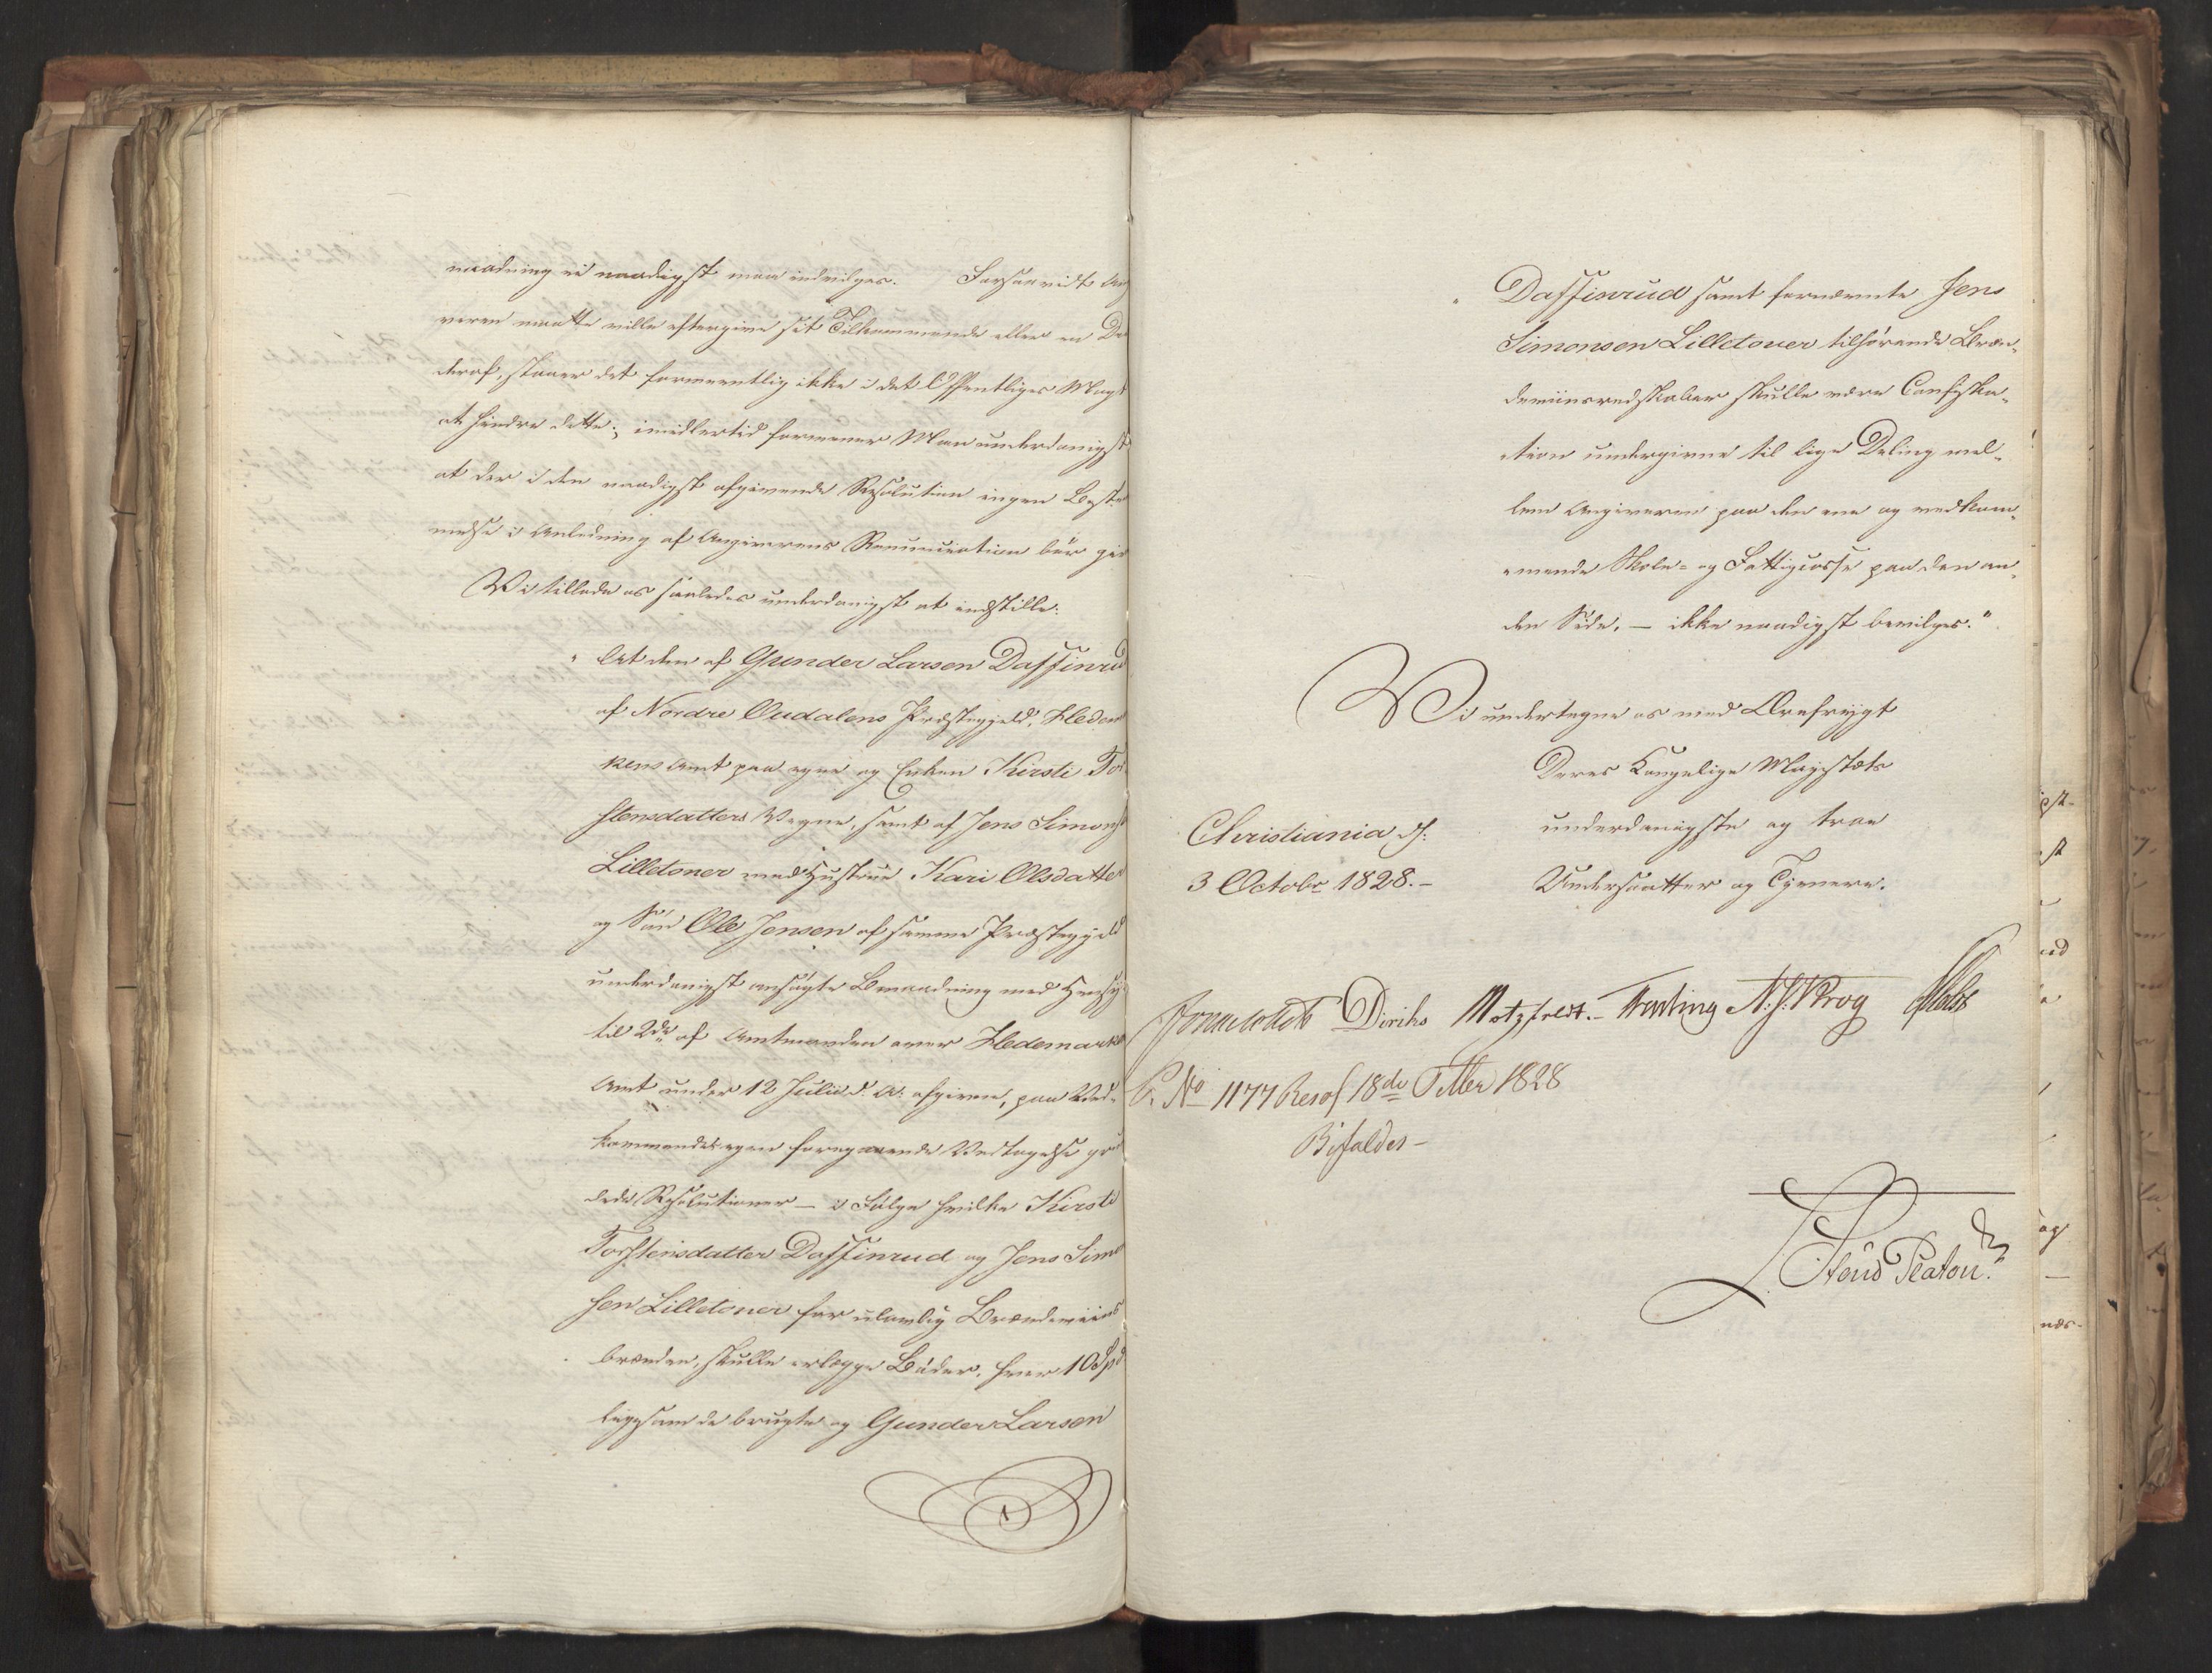 naadning ei naadigst maa indvilges. Forsaavidt An
veren maatte ville eftergive sit Tilkommende eller en De
deraf, staaer det formeentlig ikke i det Offentliges Magt
at hindre dette; imidlertid formener Man underdanigst
at der i den naadigst afgivende Resolution ingen Beste
melse i Anledning af Angiverens Renunciation bør gi
Vi tillade os saaledes underdanigst at indstille:
"At den af Gunder Larsen Dassinrud
af Nordre Oudalens Præstegjeld, Hedem
kens Amt paa egne og Enken Kirsti To
stensdatters Vegne, samt af Jens Simons
Lilletoner med Hustrue Kari Olsdatter
og Søn Ole Jensen af samme Præstegjeld
underdanigst ansøgte Benaadning med Hensyn
til 2de af Amtmanden over Hedemark
Amt under 12 Julii d. A. afgivne, paa Ved-
kommendes egen foregaaende Vedtagelse gru
dede Resolutioner – i Følge hvilke Kirsti
Torstensdatter Dassinrud og Jens Simo
sen Lilletoner for ulovlig Brændeviins
brænden, skulle erlægge Bøder, hver 10 Spd
ligesom de brugte og Gunder Larsen
" Dassinrud samt fornævnte Jens
Simonsen Lilletoner tilhørende Bræn-
deviinsredskaber skulle være Confiska-
tion undergivne til lige Deling mel-
lem Angiveren paa den ene og vedkom-
mende Skole- og Fattigcasse paa den an-
den Side, – ikke naadigst bevilges."
Vi undertegne os med Ærefrygt
Deres Kongelige Majestæts
Christiania d:
underdanigste og troe
3 Octobr 1828.-
Undersaatter og Tjenere.
Diriks Motzfeldt.- Treschow N. J. Krog
P. No 1177 Resol 18de Octbr 1828
Bifaldes-